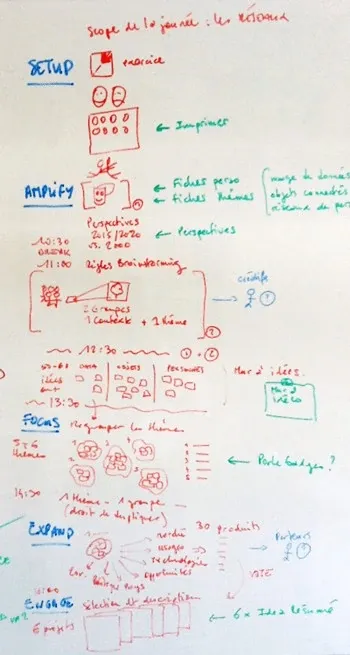 Scope de la journée : les réseaux
SETUP
exercice
← Imprimer
AMPLIFY
← Fiches perso
← Fiches thèmes
nuage de données
objets connectés
réseaux de
Perspectives
2015/2020
vs. 2000
← Perspectives
10:30
BREAK
11:00 Règles Brainstorming
2 Groupes
1 Contexte + 1 thème
crédits
12:30
1 + 2
DATA
OBJETS
PERSONNES
idées
Mur d'idées.
Mur d'
idées
13:30
FOCUS
Regrouper les thèmes
5 à 6
thèmes
1
2
3
4
5
6
← Porte badges ?
14:30
1 thème - 1 groupe
(droit de dupliquer)
EXPAND
30 produits
marché
usages
technologies
opportunités
Porteurs
VOTE
ENGAGE
Sélection et description
6 projets
← 6 x Idea Résumé